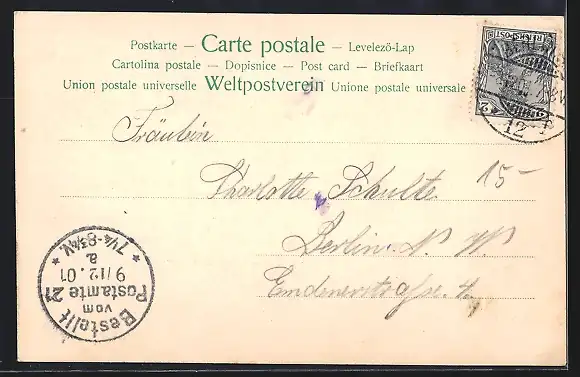 Postkarte — Carte postale — Levelező-Lap
Cartolina postale — Dopisnice — Post card — Briefkaart
Union postale universelle Weltpostverein Unione postale universale
REICHSPOST
2 2
12
Fräulein
Charlotte Schulte 15-
Berlin N. W.
Emdenerstraße 4.
Bestellt
vom
Postamte 21
9/12. 01
a
* 7¼-8¾V. *